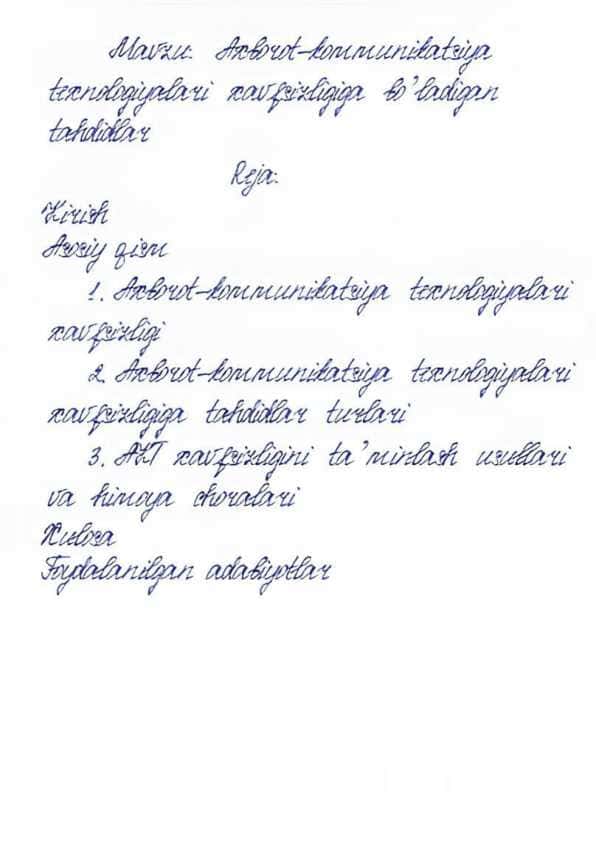 Mavzu: Axborot-kommunikatsiya
texnologiyalari xavfsizligiga bo'ladigan
tahdidlar
Reja:
Kirish
Asosiy qism
1. Axborot-kommunikatsiya texnologiyalari
xavfsizligi
2. Axborot-kommunikatsiya texnologiyalari
xavfsizligiga tahdidlar turlari
3. AKT xavfsizligini ta'minlash usullari
va himoya choralari
Xulosa
Foydalanilgan adabiyotlar